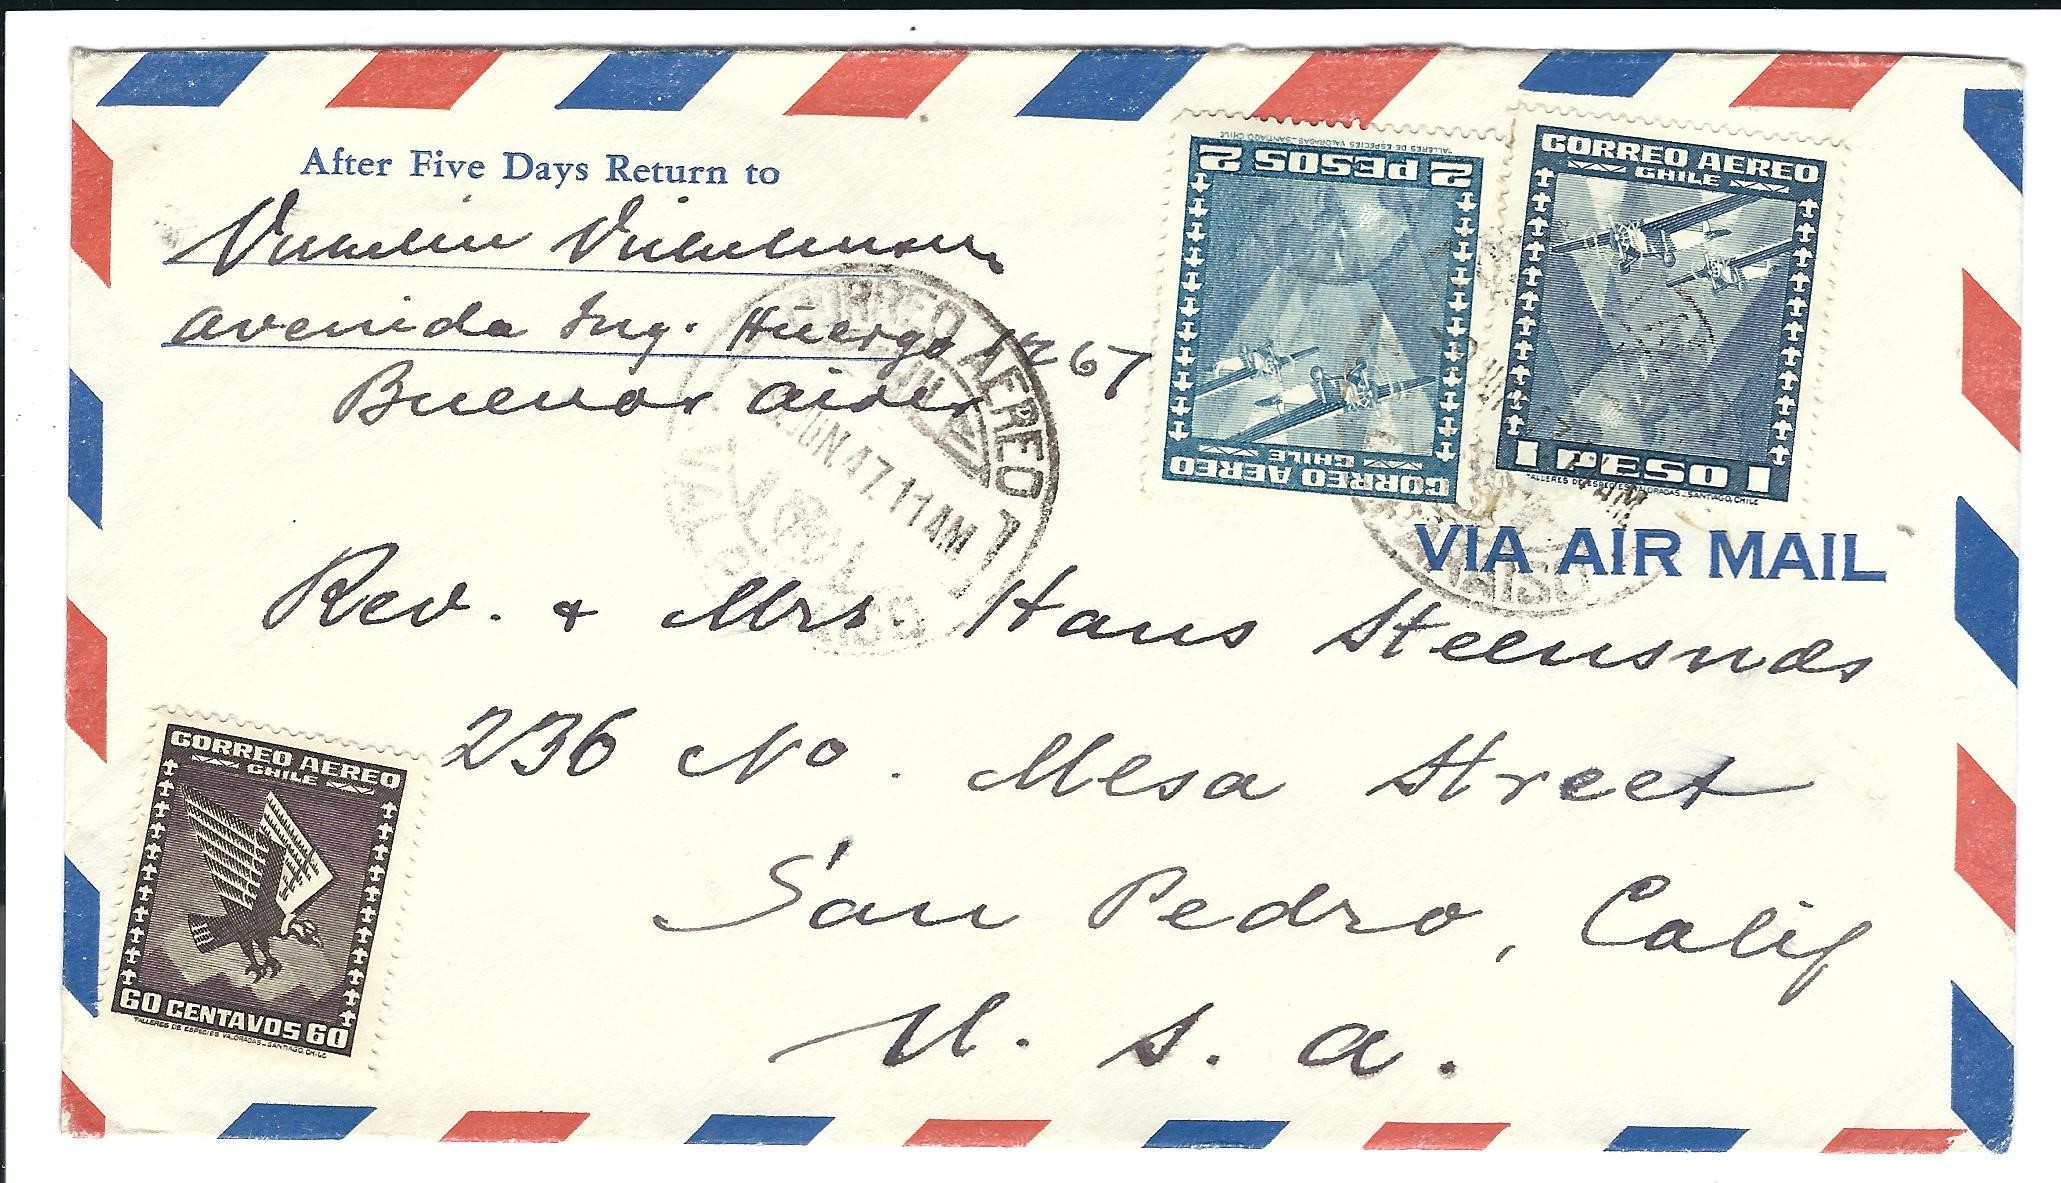 After Five Days Return to
Avenida Ing. Huergo 1267
Buenos Aires
TALLERES DE ESPECIES VALORADAS - SANTIAGO, CHILE
2 PESOS 2
CHILE
CORREO AEREO
CORREO AEREO
CHILE
1 PESO 1
TALLERES DE ESPECIES VALORADAS - SANTIAGO, CHILE
CORREO AEREO 1
JUN. 47. 11 AM
VALPARAISO
VIA AIR MAIL
Rev. & Mrs Hans Steensnæs
236 No. Mesa Street
San Pedro, Calif
U. S. A.
CORREO AEREO
CHILE
60 CENTAVOS 60
TALLERES DE ESPECIES VALORADAS - SANTIAGO, CHILE